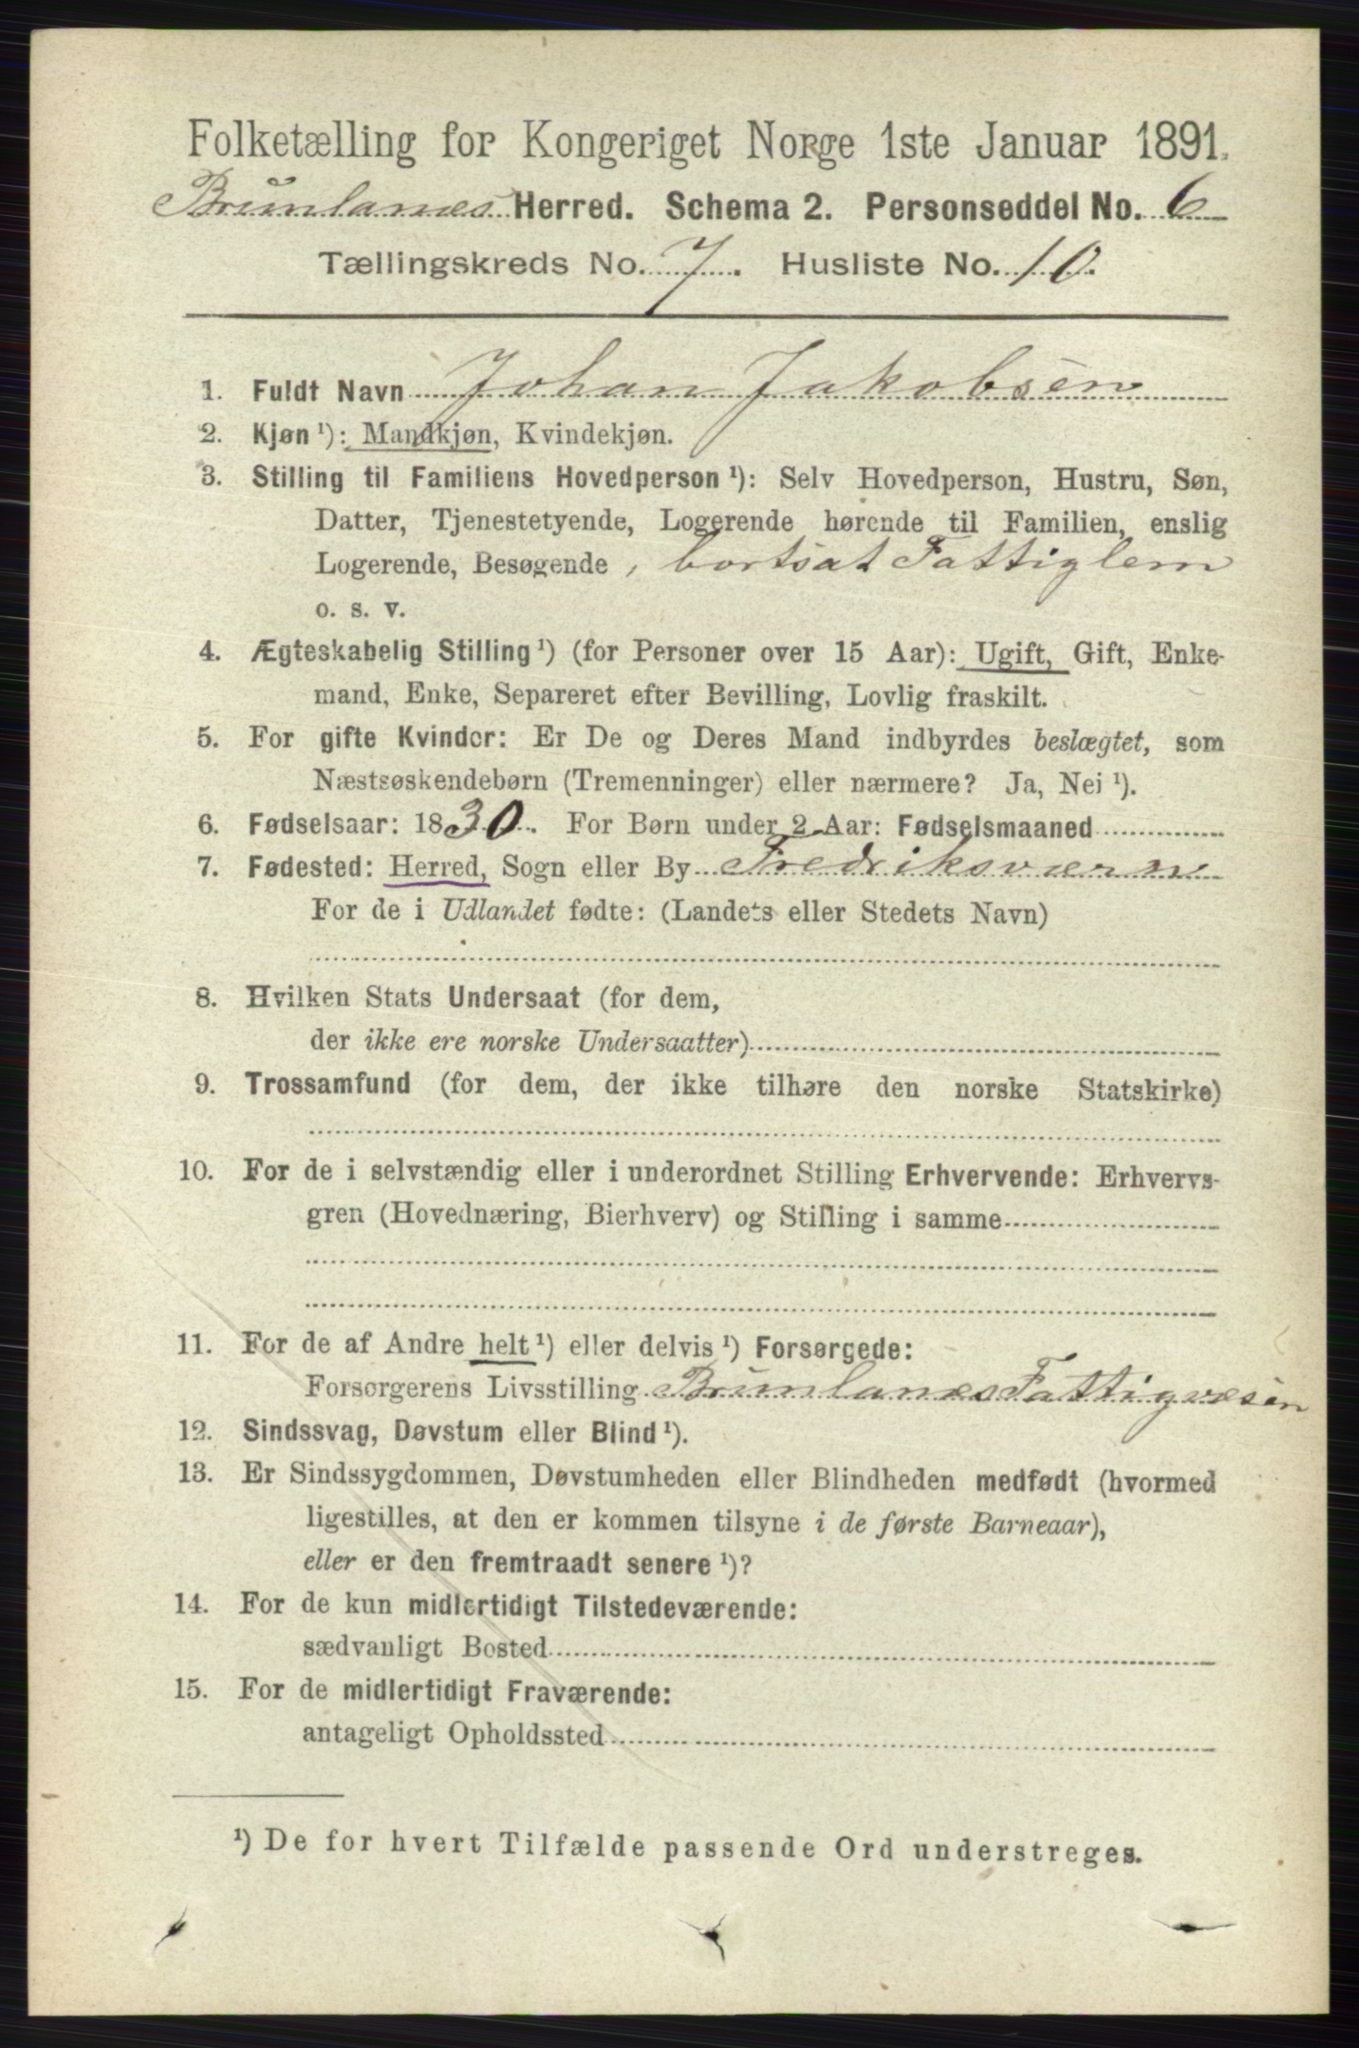 Folketælling for Kongeriget Norge 1ste Januar 1891.
Brunlanæs Herred. Schema 2. Personseddel No. 6
Tællingskreds No. 7. Husliste No. 10.
1. Fuldt Navn Johan Jakobsen
2. Kjøn ¹): Mandkjøn, Kvindekjøn.
3. Stilling til Familiens Hovedperson ¹): Selv Hovedperson, Hustru, Søn,
Datter, Tjenestetyende, Logerende hørende til Familien, enslig
Logerende, Besøgende, bortsat Fattiglem
o. s. v.
4. Ægteskabelig Stilling ¹) (for Personer over 15 Aar): Ugift, Gift, Enke-
mand, Enke, Separeret efter Bevilling, Lovlig fraskilt.
5. For gifte Kvinder: Er De og Deres Mand indbyrdes beslægtet, som
Næstsøskendebørn (Tremenninger) eller nærmere? Ja, Nei ¹).
6. Fødselsaar: 1830. For Børn under 2 Aar: Fødselsmaaned
7. Fødested: Herred, Sogn eller By Fredriksværn
For de i Udlandet fødte: (Landets eller Stedets Navn)
8. Hvilken Stats Undersaat (for dem,
der ikke ere norske Undersaatter)
9. Trossamfund (for dem, der ikke tilhøre den norske Statskirke)
10. For de i selvstændig eller i underordnet Stilling Erhvervende: Erhvervs-
gren (Hovednæring, Bierhverv) og Stilling i samme
11. For de af Andre helt ¹) eller delvis ¹) Forsørgede:
Forsørgerens Livsstilling Brunlanæs Fattigvæsen
12. Sindssvag, Døvstum eller Blind ¹).
13. Er Sindssygdommen, Døvstumheden eller Blindheden medfødt (hvormed
ligestilles, at den er kommen tilsyne i de første Barneaar),
eller er den fremtraadt senere ¹)?
14. For de kun midlertidigt Tilstedeværende:
sædvanligt Bosted
15. For de midlertidigt Fraværende:
antageligt Opholdssted
¹) De for hvert Tilfælde passende Ord understreges.